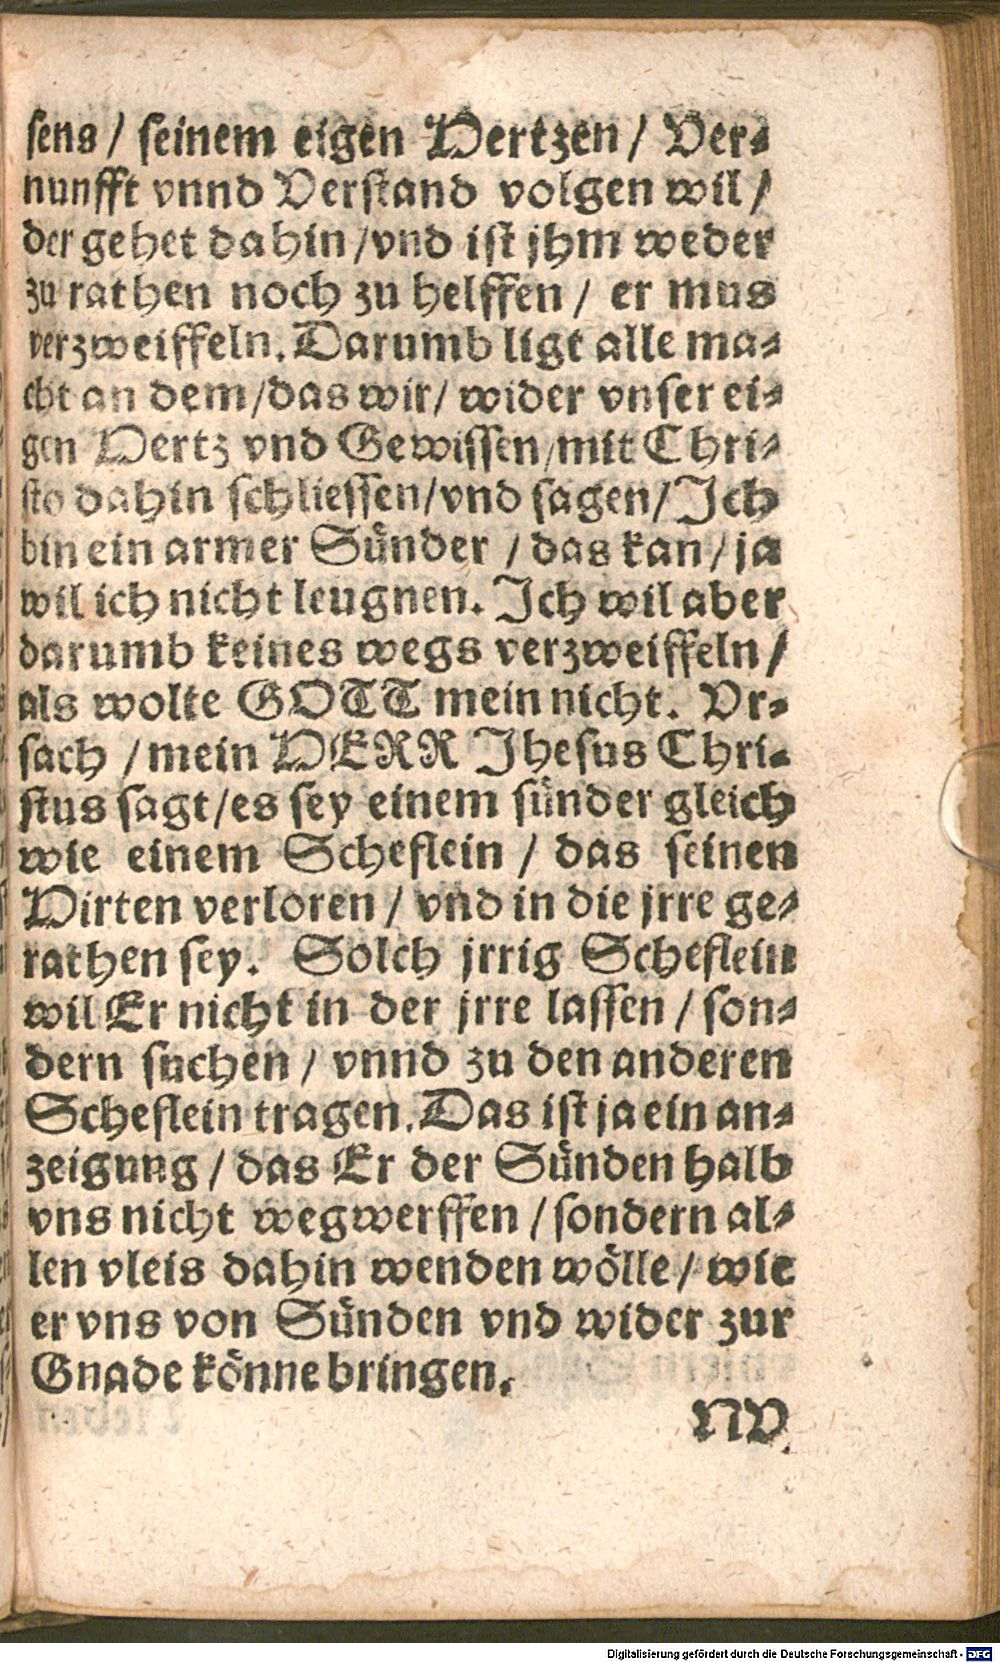 sens / seinem eigen Hertzen / Ver-
nunfft vnnd Verstand volgen wil /
der gehet dahin / vnd ist jhm weder
zu rathen noch zu helffen / er mus
verzweiffeln. Darumb ligt alle ma-
cht an dem / das wir / wider vnser ei-
gen Hertz vnd Gewissen / mit Chri-
sto dahin schliessen / vnd sagen / Ich
bin ein armer Sünder / das kan / ja
wil ich nicht leugnen. Ich wil aber
darumb keines wegs verzweiffeln /
als wolte GOTT mein nicht. Vr-
sach / mein HERR Jhesus Chri-
stus sagt / es sey einem sünder gleich
wie einem Scheflein / das seinen
Hirten verloren / vnd in die jrre ge-
rathen sey. Solch jrrig Scheflein
wil Er nicht in der jrre lassen / son-
dern suchen / vnnd zu den anderen
Scheflein tragen. Das ist ja ein an-
zeigung / das Er der Sünden halb
vns nicht wegwerffen / sondern al-
len vleis dahin wenden wölle / wie
er vns von Sünden vnd wider zur
Gnade könne bringen.
NV
Digitalisierung gefördert durch die Deutsche Forschungsgemeinschaft - DFG